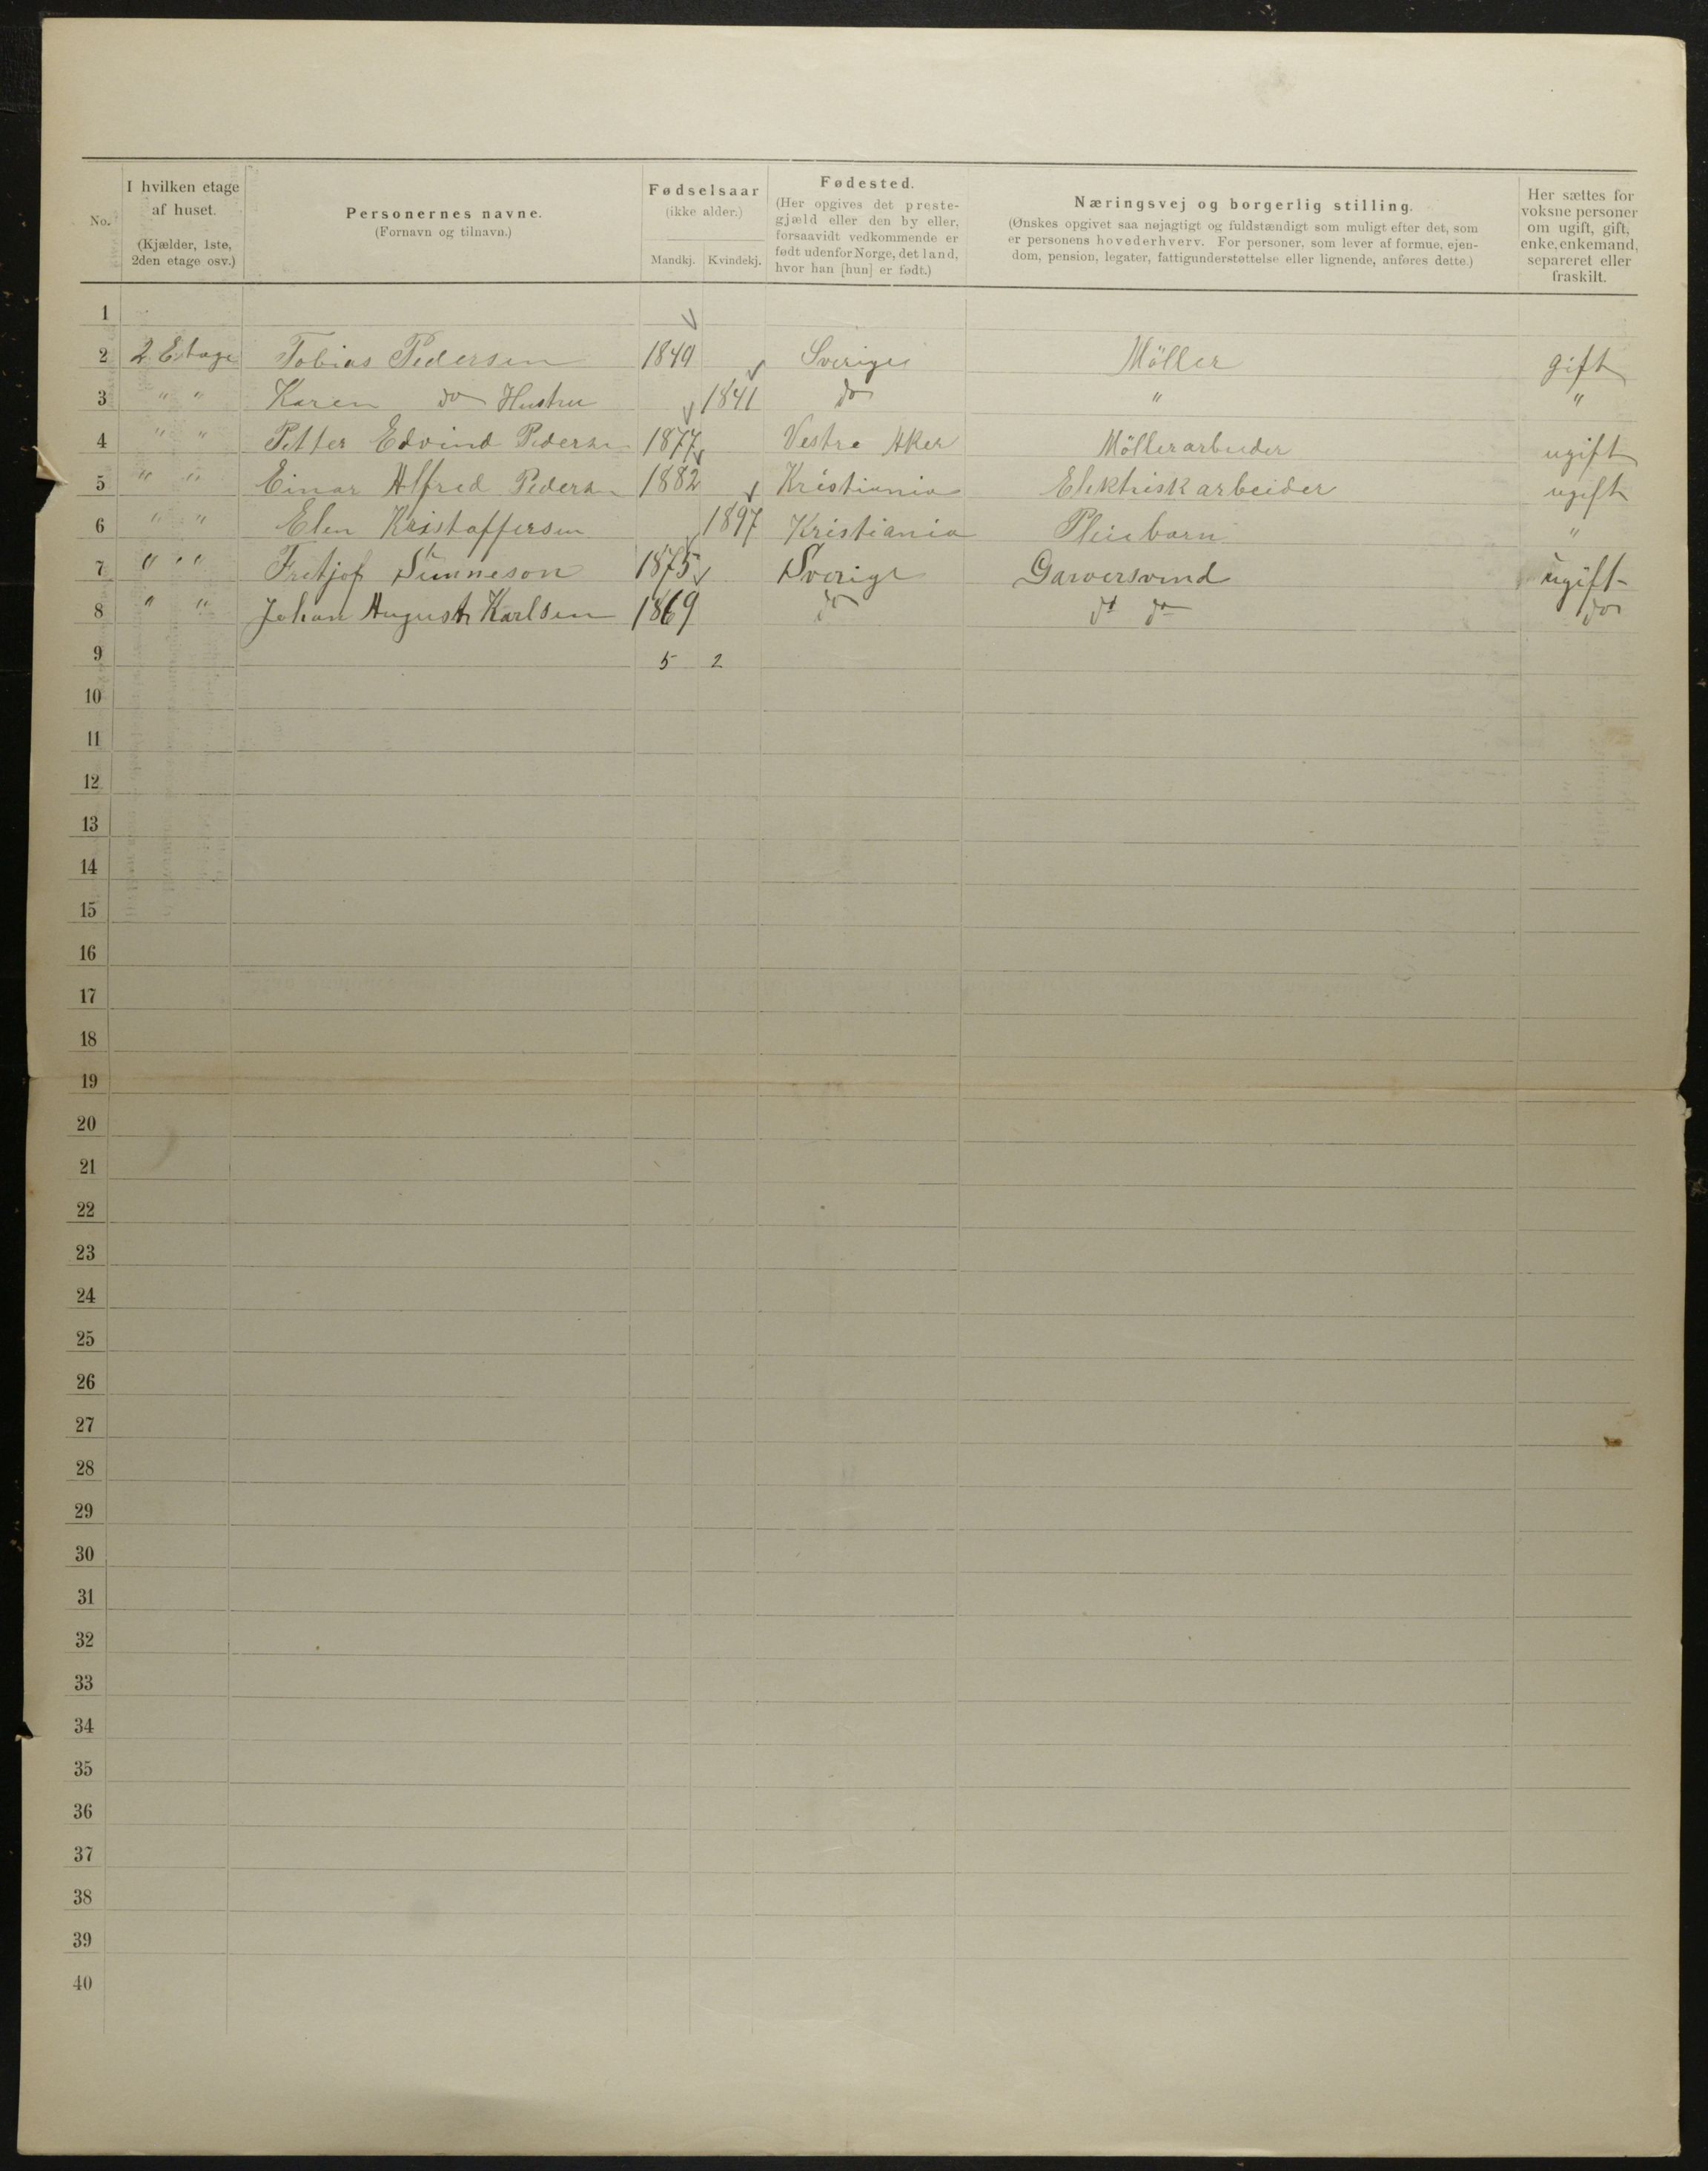 No.
I hvilken etage af huset. (Kjælder, 1ste, 2den etage osv.)
Personernes navne. (Fornavn og tilnavn.)
Fødselsaar (ikke alder.) Mandkj. Kvindekj.
Fødested. (Her opgives det prestegjæld eller den by eller, forsaavidt vedkommende er født udenfor Norge, det land, hvor han [hun] er født.)
Næringsvej og borgerlig stilling. (Ønskes opgivet saa nøjagtigt og fuldstændigt som muligt efter det, som er personens hovederhverv. For personer, som lever af formue, ejendom, pension, legater, fattigunderstøttelse eller lignende, anføres dette.)
Her sættes for voksne personer om ugift, gift, enke, enkemand, separeret eller fraskilt.
1
2 2 Etage Tobias Pedersen 1849 Sverige Möller gift
3 " " Karen do Hustru 1841 do " "
4 " " Petter Edvind Pedersen 1877 Vestre Aker Möllerarbeider ugift
5 " " Einar Alfred Pedersen 1882 Kristiania Elektrisk arbeider ugift
6 " " Elen Kristoffersen 1897 Kristiania Pleiebarn "
7 " " Fretjof Sunneson 1875 Sverige Garversvend ugift
8 " " Johan August Karlsen 1869 do do do do
9 5 2
10
11
12
13
14
15
16
17
18
19
20
21
22
23
24
25
26
27
28
29
30
31
32
33
34
35
36
37
38
39
40